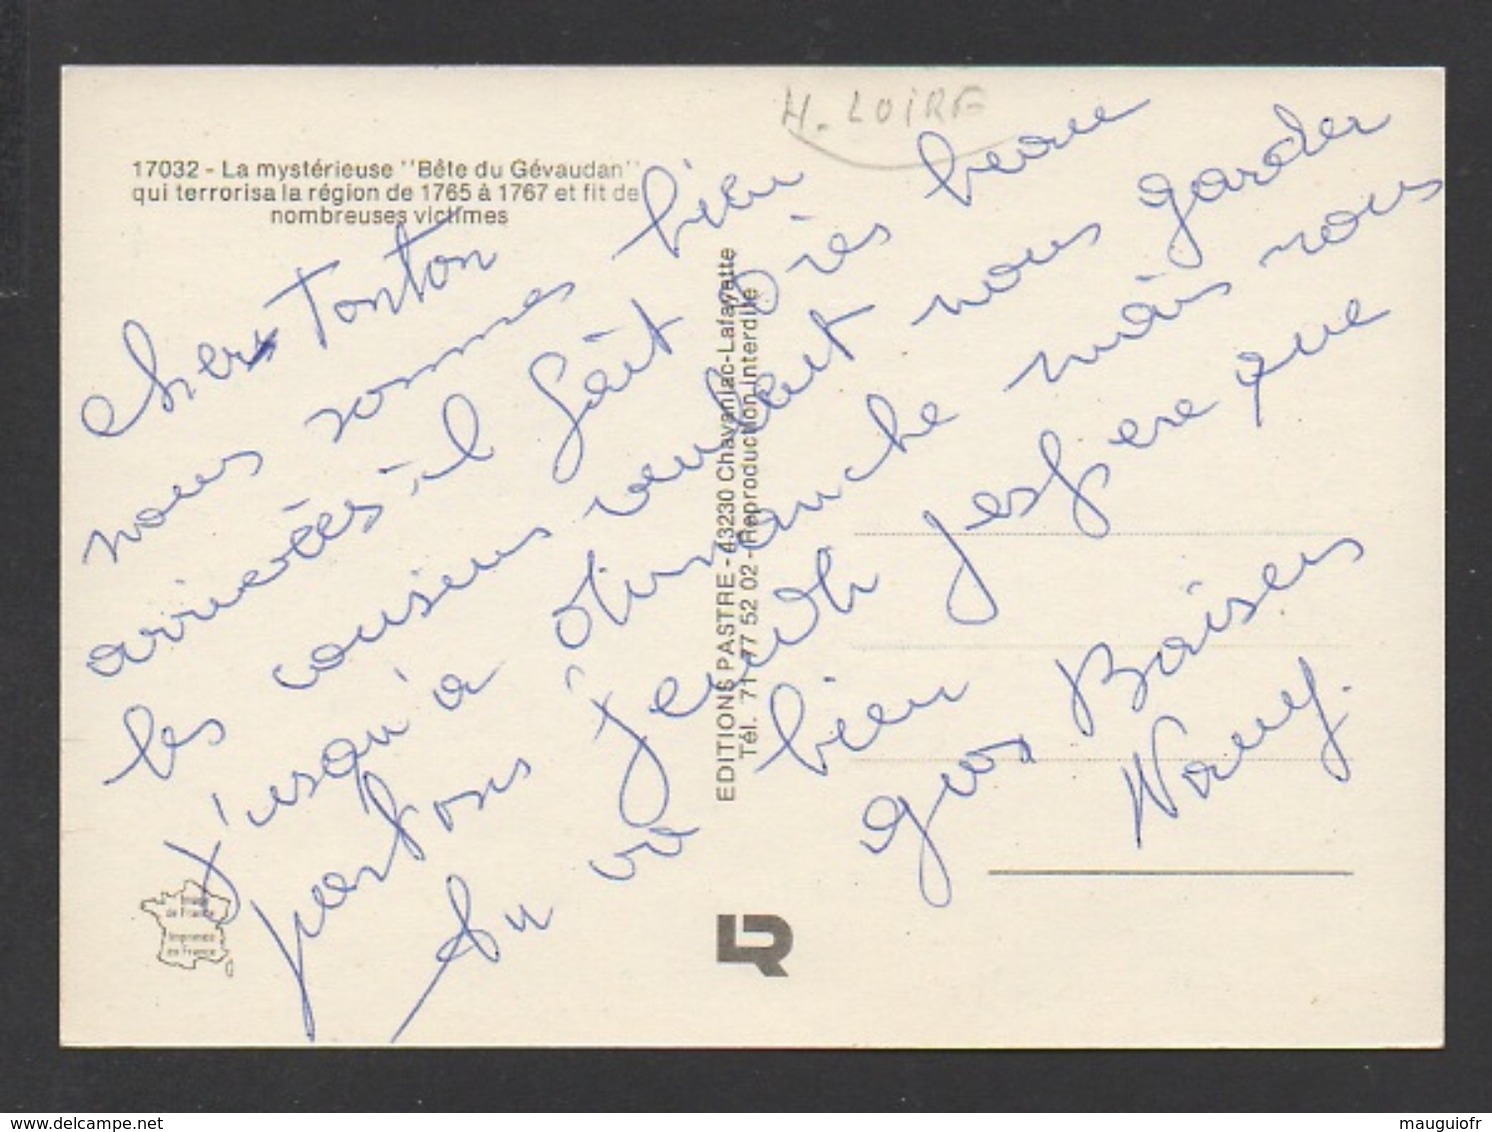 H. LOIRE
17032 - La mystérieuse "Bête du Gévaudan"
qui terrorisa la région de 1765 à 1767 et fit de
nombreuses victimes
cher Tonton
nous sommes bien
arrivées il fait très beau
les cousins veulent nous garder
j'usqu'à dimanche mais nous
partons jeudi jespere que
tu va bien
gros Baisers
Nany.
EDITIONS PASTRE - 43230 Chavaniac-Lafayette
Tél. 71 77 52 02 - Reproduction interdite
Image
de France
Imprimée
en France
LR
www.delcampe.net
mauguiofr